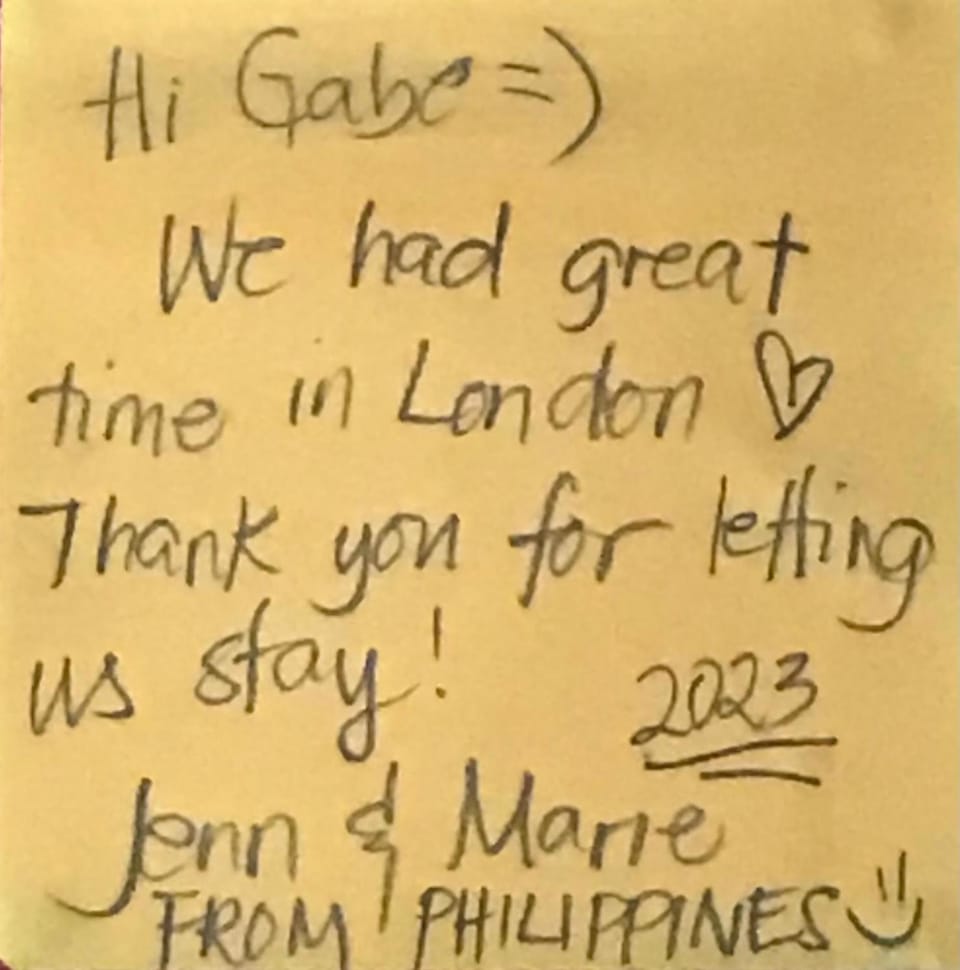 Hi Gabe =)
We had great
time in London ♡
Thank you for letting
us stay!
2023
Jenn & Marie
FROM PHILIPPINES :)